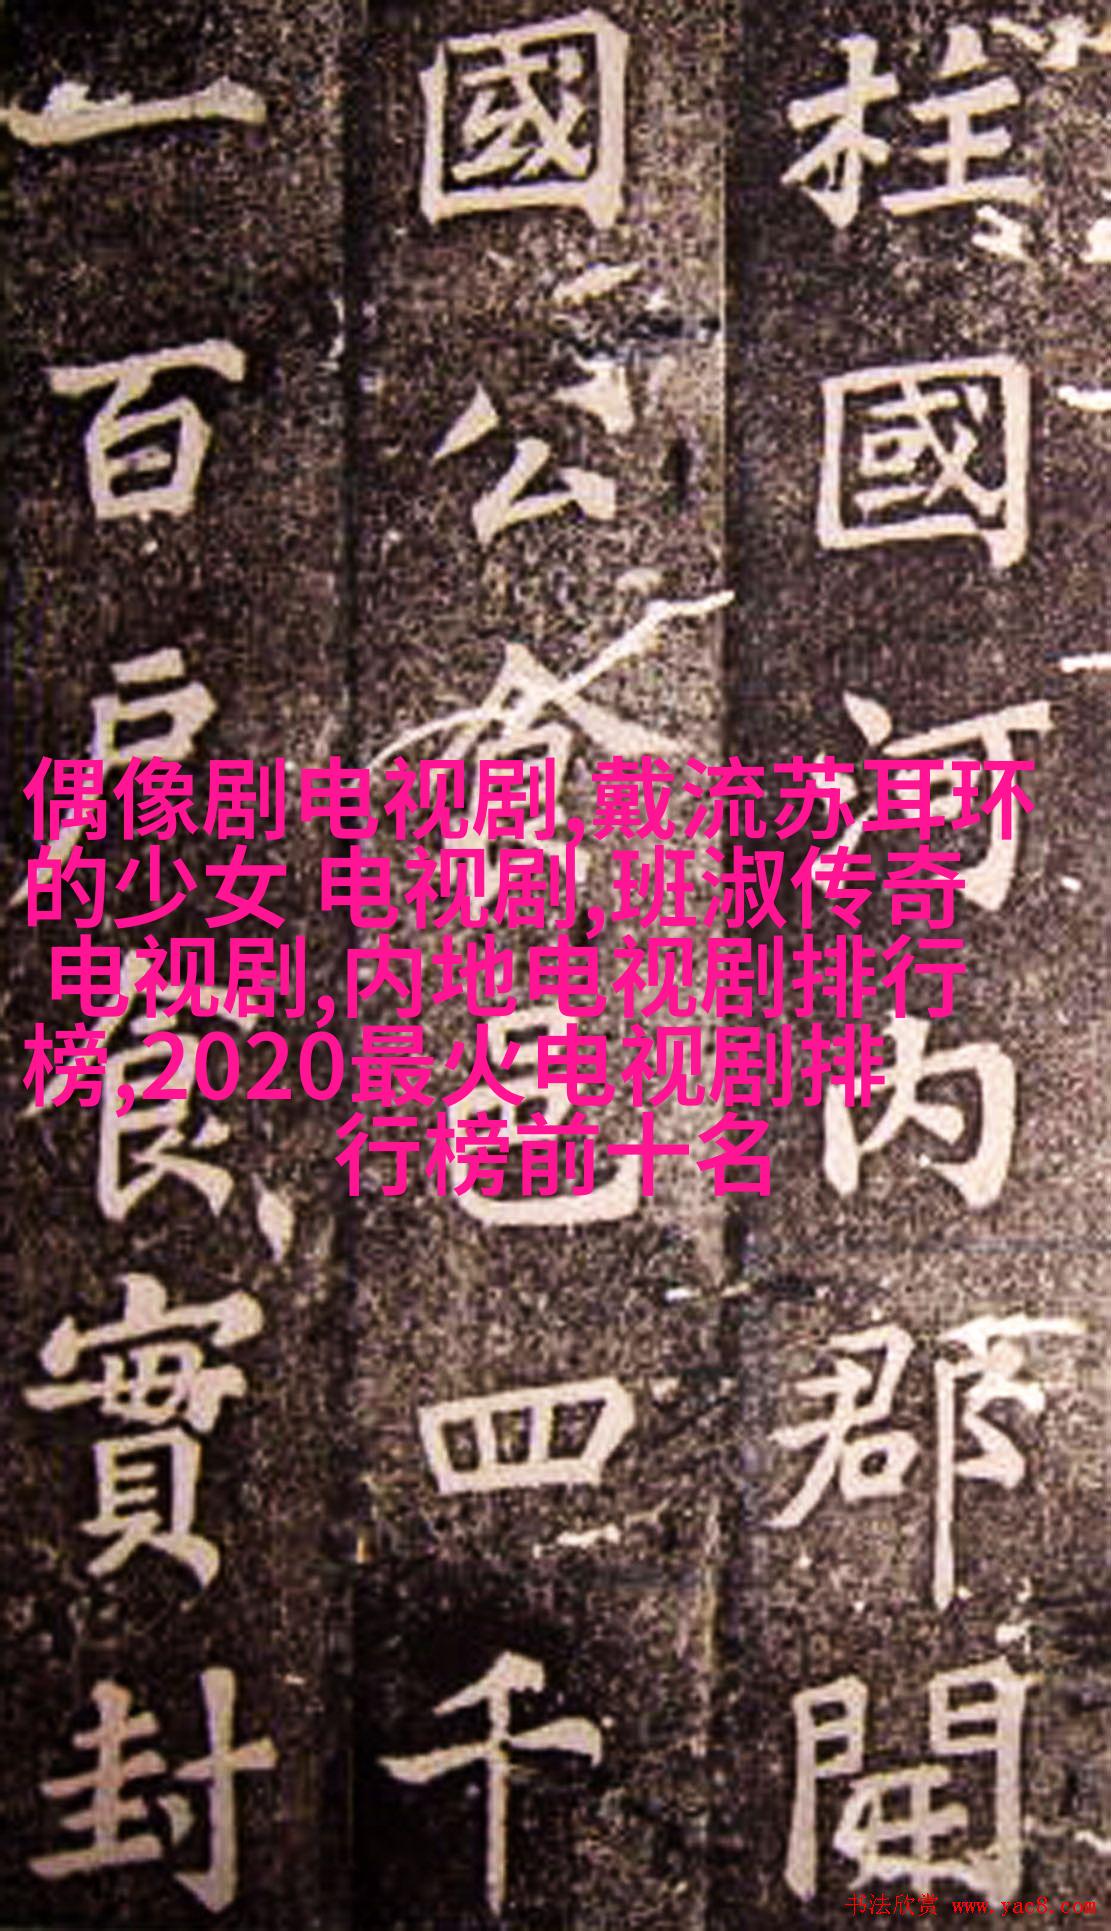 柱國河内郡開
國公食邑四千
一百戶食實封
偶像剧电视剧,戴流苏耳环
的少女 电视剧,班淑传奇
电视剧,内地电视剧排行
榜,2020最火电视剧排
行榜前十名
书法欣赏 www.yac8.com